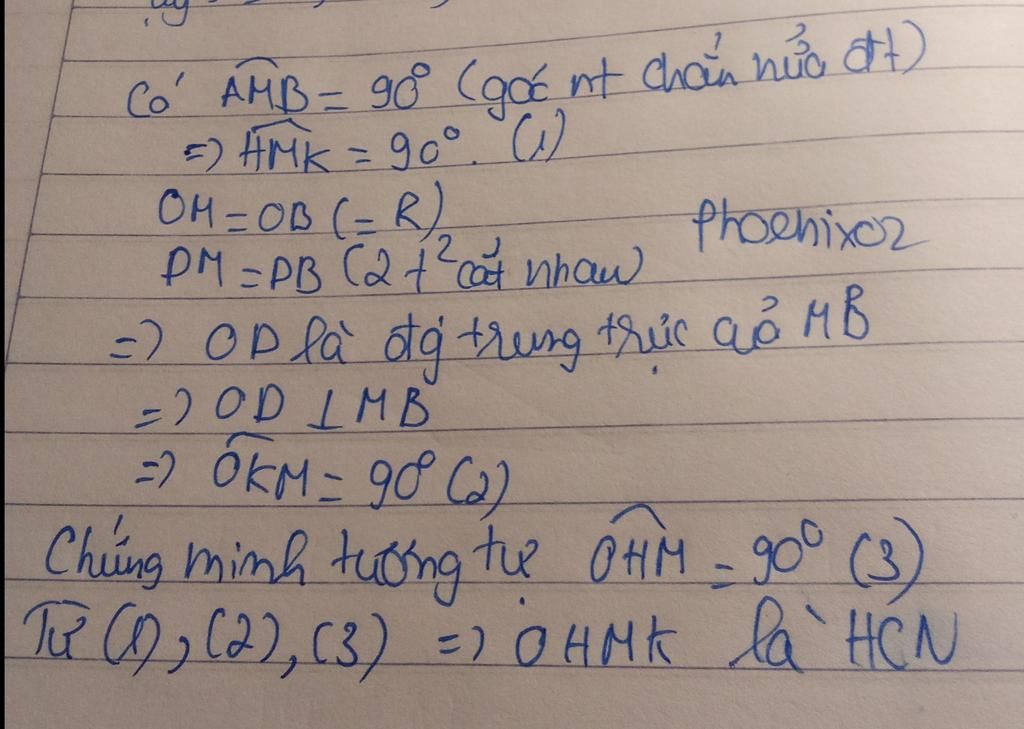 Có AMB = 90° (góc nt chắn nửa đt)
=> HMK = 90°. (1)
OM = OB (= R)
Phoenix02
DM = DB (2 t² cắt nhau)
=> OD là đg trung trực củả MB
=> OD ⊥ MB
=> OKM = 90° (2)
Chứng minh tương tự OHM = 90° (3)
Từ (1), (2), (3) => OHMK là HCN